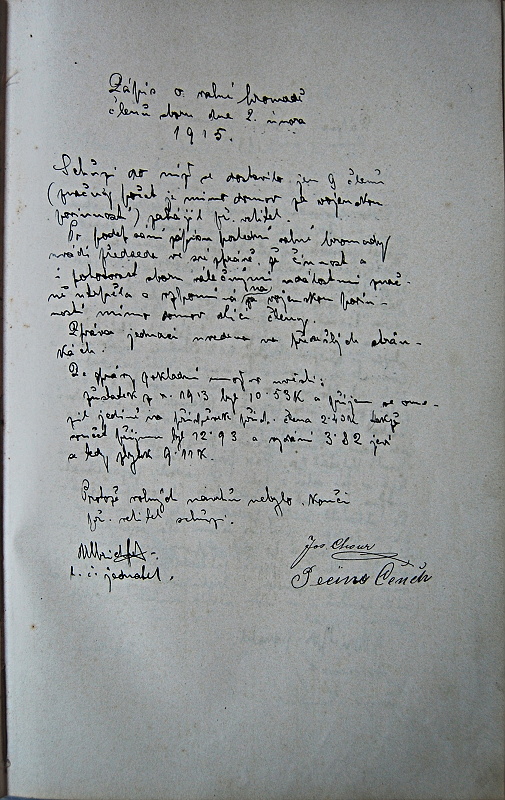 Zápis o valní hromadě
členů sboru dne 2. února
1915.
Schůzi do níž se dostavilo jen 9 členů
(značný počet je mimo domov po vojenskou
povinnost) zahájil př. velitel.
Po podepsání zápisu poslední valní hromady
uvádí předseda ve své zprávě, že činnost a
i pohotovost sboru válečnými událostmi znač-
ně utrpěla a vzpomíná na vojenskou povin-
ností mimo domov dlící členy.
Zpráva jednací uvedena na předešlých strán-
kách.
Ze zprávy pokladní možno uvésti:
přebytek z r. 1913 byl 10·53K a příjem se ome-
zil jedině na příspěvek přisp. člena 2·40K takže
součet příjmu byl 12·93 a vydání 3·82 jeví
a tedy zbytek 9·11K.
Protože volných návrhů nebylo končí
př. velitel schůzi.
Ulbrich
t. č. jednatel.
Jos. Chour
Pecina Čeněk